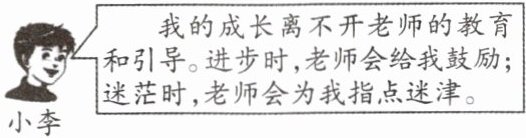 我的成长离不开老师的教育
和引导。进步时,老师会给我鼓励;
迷茫时,老师会为我指点迷津。
小李